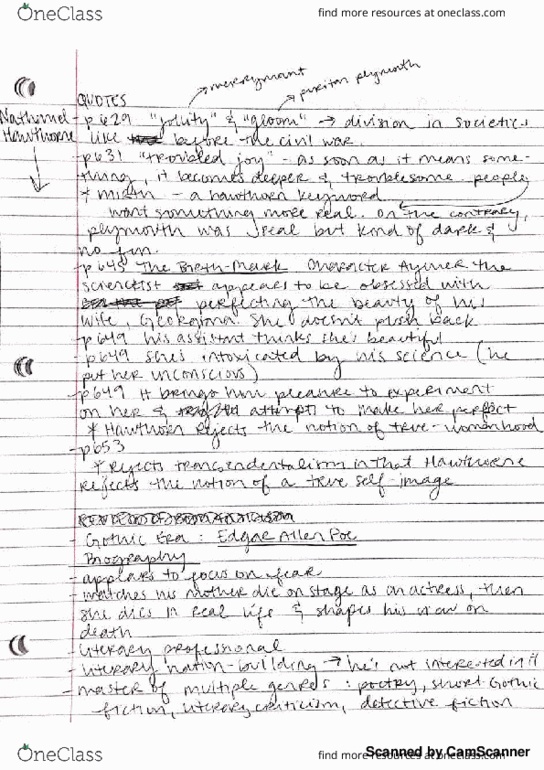 OneClass
find more resources at oneclass.com
merrymount
puritan plymouth
QUOTES
Nathaniel Hawthorne
- p629 "jollity" & "gloom" → division in societies
like before the civil war.
- p631 "troubled joy" - as soon as it means some-
thing, it becomes deeper & troublesome. people
* mirth - a hawthorn keyword
want something more real. On the contrary,
plymouth was real but kind of dark &
no fun.
- p645 The Birth-Mark Character Aymer the
scientist appears to be obsessed with
perfecting the beauty of his
wife, Georgiana. She doesn't push back
- p649 his assistant thinks she's beautiful
- p649 she's intoxicated by his science (he
put her unconscious)
- p649 It brings him pleasure to experiment
on her & attempt to make her perfect
* Hawthorn rejects the notion of true-womanhood
- p653
* Rejects transcendentalism in that Hawthorne
rejects the notion of a true self-image
- Gothic Era : Edgar Allen Poe
Biography
- appears to focus on fear
- watches his mother die on stage as an actress, then
she dies in real life & shapes his view on
death
- literary professional
- literary nation-building → he's not interested in it
- master of multiple genres : poetry, short Gothic
fiction, literary criticism, detective fiction
OneClass
find more resources at oneclass.com
Scanned by CamScanner